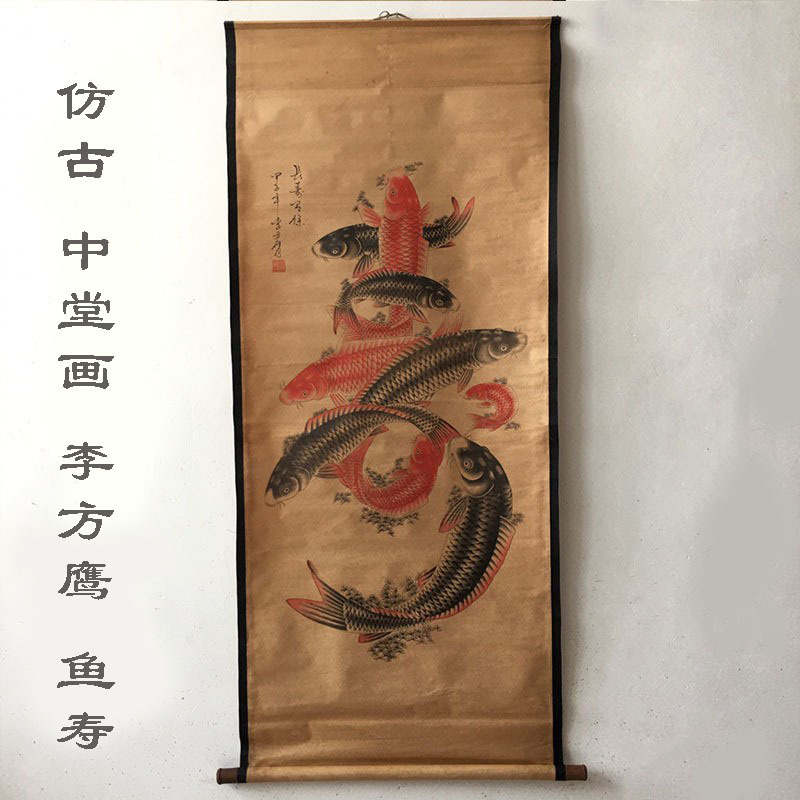 仿古 中堂画 李方鹰 鱼寿
长寿有馀
甲子年 李方膺